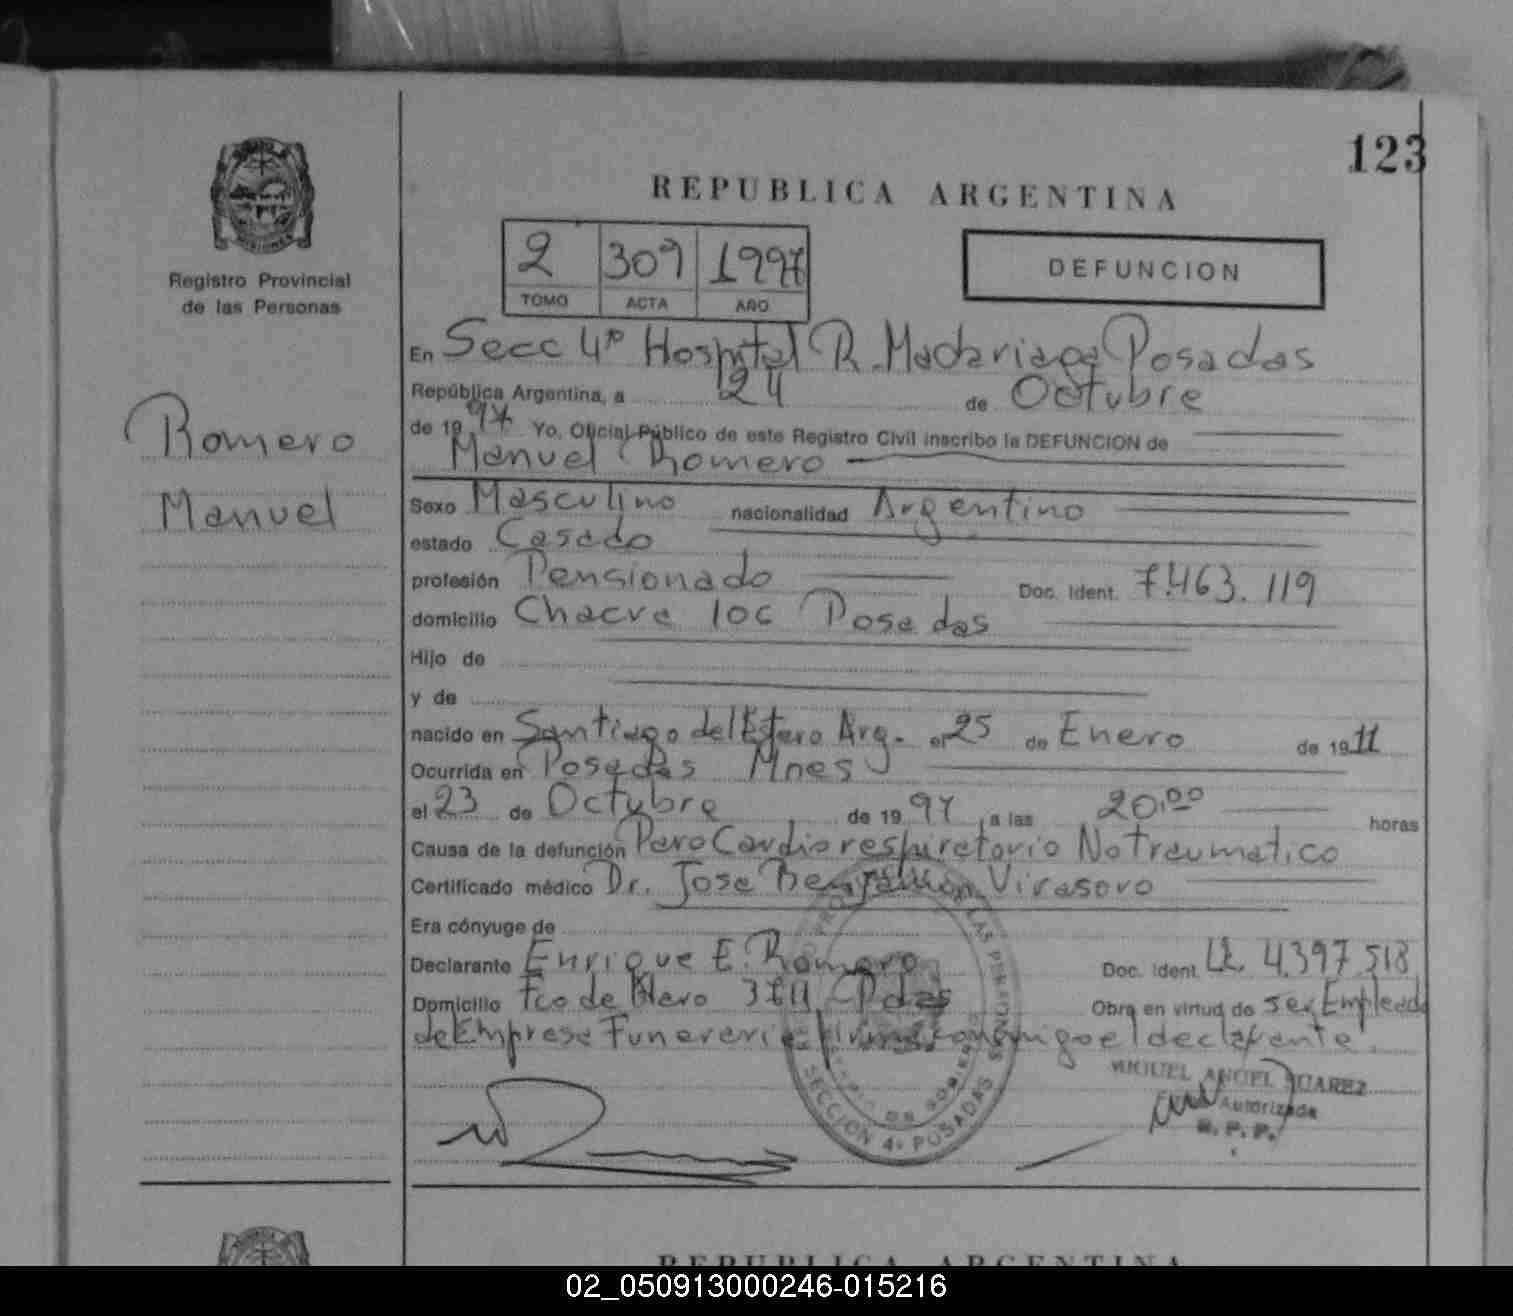 123
REPUBLICA ARGENTINA
2 309 1997
TOMO ACTA AÑO
DEFUNCION
MISIONES
Registro Provincial
de las Personas
Romero
Manuel
En Secc 4º Hospital R. Madariaga Posadas
República Argentina, a 24 de Octubre
de 19 97 Yo, Oficial Público de este Registro Civil inscribo la DEFUNCION de
Manuel Romero
Sexo Masculino nacionalidad Argentino
estado Casado
profesión Pensionado Doc. Ident. 7.463.119
domicilio Chacra 106 Posadas
Hijo de
y de
nacido en Santiago del Estero Arg. el 25 de Enero de 19 11
Ocurrida en Posadas Mnes
el 23 de Octubre de 19 97 a las 20,00 horas
Causa de la defunción Paro Cardiorespiratorio No traumatico
Certificado médico Dr. Jose Benjamin Virasoro
Era cónyuge de
Declarante Enrique E. Romero Doc. Ident. LE. 4.397.518
Domicilio Fco de Haro Pdas Obra en virtud de ser Empleado
de Empresa Funeraria firma conmigo el declarante.
LAS PERSONAS
SECCION 4ª POSADAS
MIGUEL ANGEL SUAREZ
Autorizada
R. P. P.
REPUBLICA ARGENTINA
02_050913000246-015216